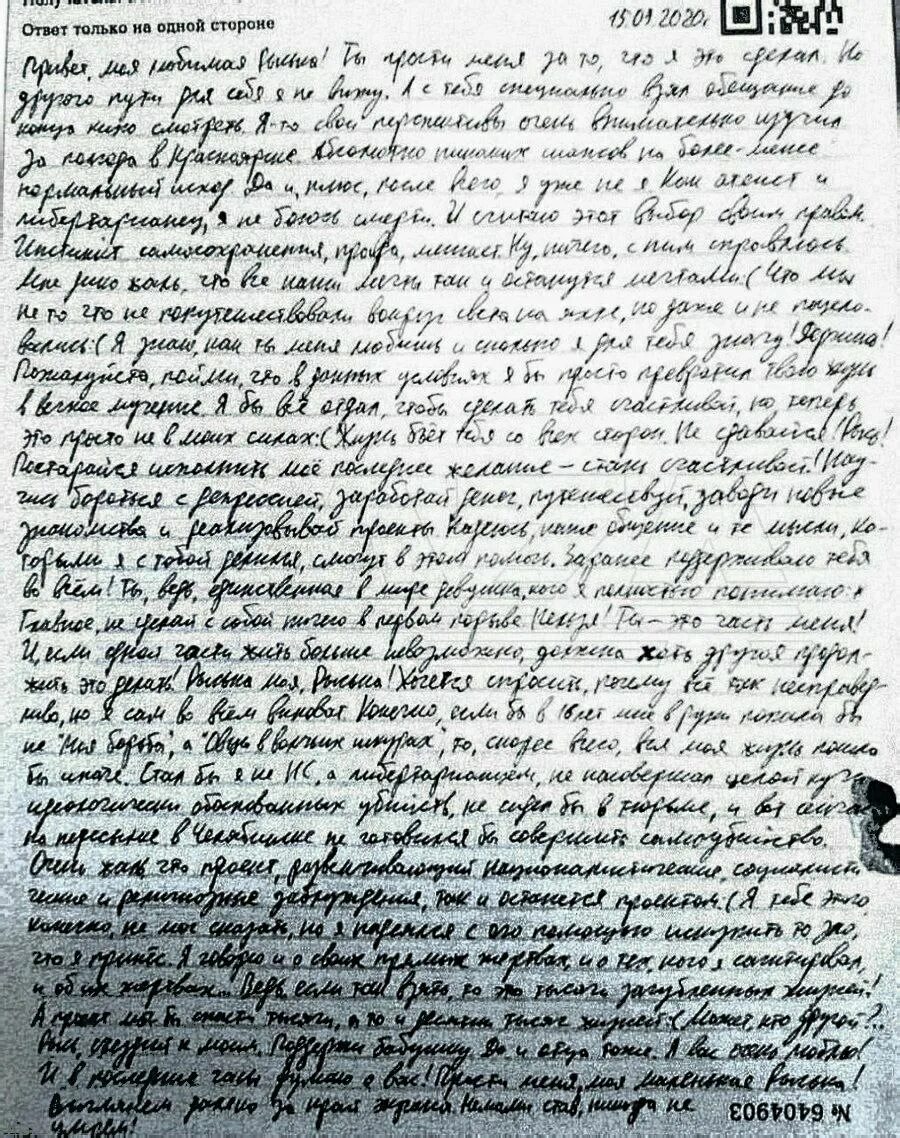 Ответ только на одной стороне
15.09.2020г
Привет, моя любимая Рыська! Ты прости меня за то, что я это сделал. Но
другого пути для себя я не вижу. А с тебя специально взял обещание до
конца кино смотреть. Я-то свои перспективы очень внимательно изучил
за полгода в Красноярске. Абсолютно никаких шансов на более-менее
нормальный исход. Да и, плюс, после всего, я уже не я. Как атеист и
либертарианец, я не боюсь смерти. И считаю этот выбор своим правом.
Инстинкт самосохранения, правда, мешает. Ну, ничего, с ним справлюсь.
Мне дико жаль, что все наши мечты так и останутся мечтами:( Что мы
не то что не попутешествовали вокруг света на яхте, но даже и не поцело-
вались:( Я знаю, как ты меня любишь и сколько я для тебя значу!
Пожалуйста, пойми, что в данных условиях я бы просто превратил твою жизнь
в вечное мучение. Я бы всё отдал, чтобы сделать тебя счастливой, но теперь
это просто не в моих силах:( Жизнь бьёт тебя со всех сторон. Не сдавайся! Рысь!
Постарайся исполнить моё последнее желание – стань счастливой! Нау-
чись бороться с депрессией, заработай денег, путешествуй, заводи новые
знакомства и реализовывай проекты. Надеюсь, наше общение и те мысли, ко-
торыми я с тобой делился, смогут в этом помочь. Заранее поддерживаю тебя
во всём! Ты, ведь, единственная в мире девушка, кого я полностью понимаю:*
Главное, не сделай с собой ничего в первом порыве. Нельзя! Ты – это часть меня!
И, если одной части жить больше невозможно, должна хоть другая продол-
жить это делать! Рыська моя, Рыська! Хочется спросить, почему всё так несправед-
ливо, но я сам во всём виноват. Конечно, если бы в 16 лет мне в руки попала бы
не "Моя борьба", а "Овцы в волчьих шкурах", то, скорее всего, вся моя жизнь пошла
бы иначе. Стал бы я не НС, а либертарианцем, не насовершал целой кучи
идеологически обоснованных убийств, не сидел бы в тюрьме, и вот сейчас
на пересылке в Челябинске не готовился бы совершить самоубийство.
Очень жаль, что проект, развенчивающий националистические, социалисти-
ческие и религиозные заблуждения, так и останется проектом:( Я тебе этого,
конечно, не мог сказать, но я надеялся с его помощью искупить то зло,
что я принёс. Я говорю и о своих прямых жертвах, и о тех, кого я сагитировал,
и об их жертвах... Ведь, если так взять, то это тысячи загубленных жизней!
А проект мог бы спасти тысячи, а то и десятки тысяч жизней:( Может, кто другой?..
Рысь, съезди к моим. Поддержи бабушку. Да и отца тоже. Я вас очень люблю!
И в последние часы думаю о вас! Прости меня, моя маленькая Рыська!
Выглянем далеко за край экрана. Нами став, никогда не
умрём!
№ 6404903